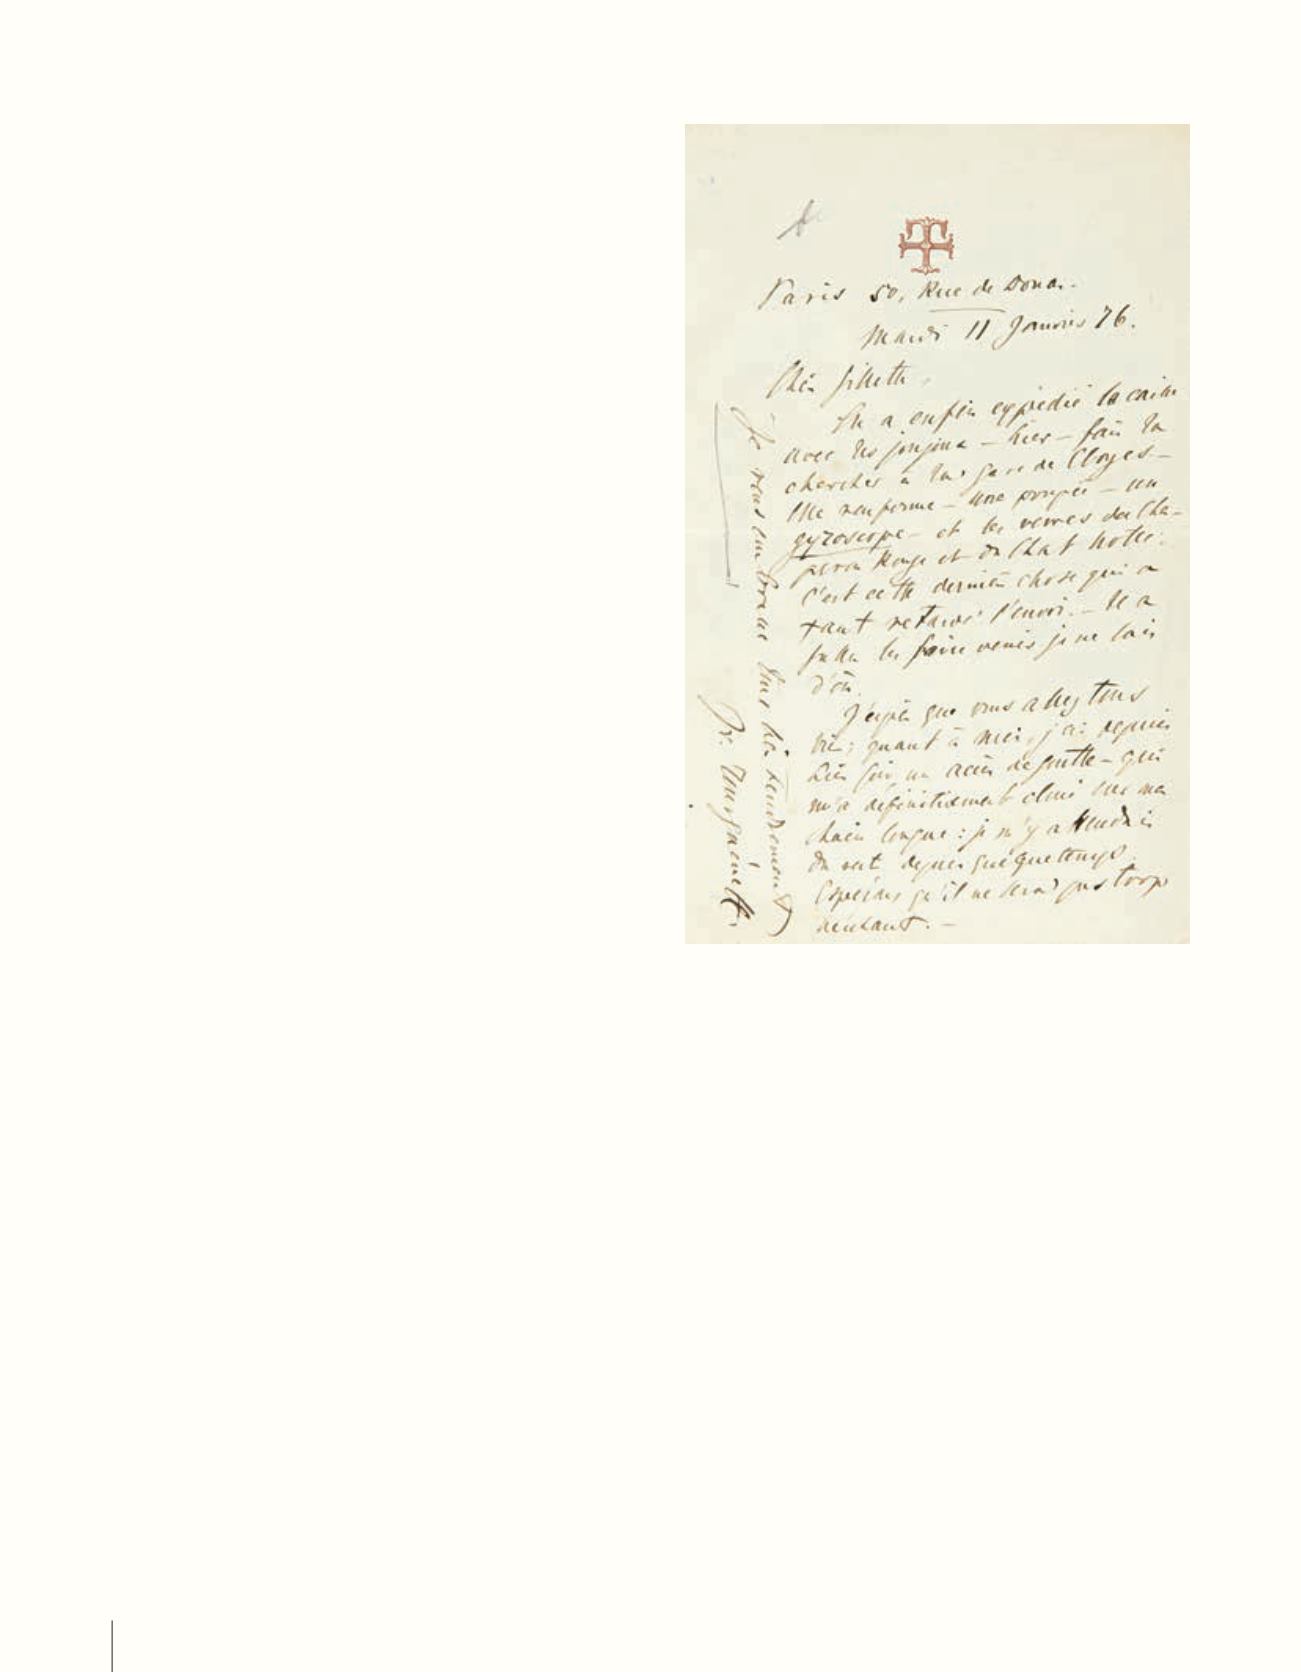 Paris 50, Rue de Douai.
Mardi 11 Janvier 76.
Chère fillette,
On a enfin expédié la caisse
avec les joujoux – hier – fais la
chercher à la gare de Cloyes –
Elle renferme – une poupée – un
gyroscope – et les verres du Cha-
peron Rouge et du Chat botté:
c'est cette dernière chose qui a
tant retardé l'envoi. – Il a
fallu les faire venir je ne sais
d'où.
J'espère que vous allez tous
bien; quant à moi, j'ai depuis
hier soir un accès de goutte – qui
m'a définitivement cloué sur ma
chaise longue: je m'y attendais
du reste depuis quelque temps.
Espérons qu'il ne sera pas trop
méchant. –
Je vous embrasse tous bien tendrement
Iv. Tourguéneff.